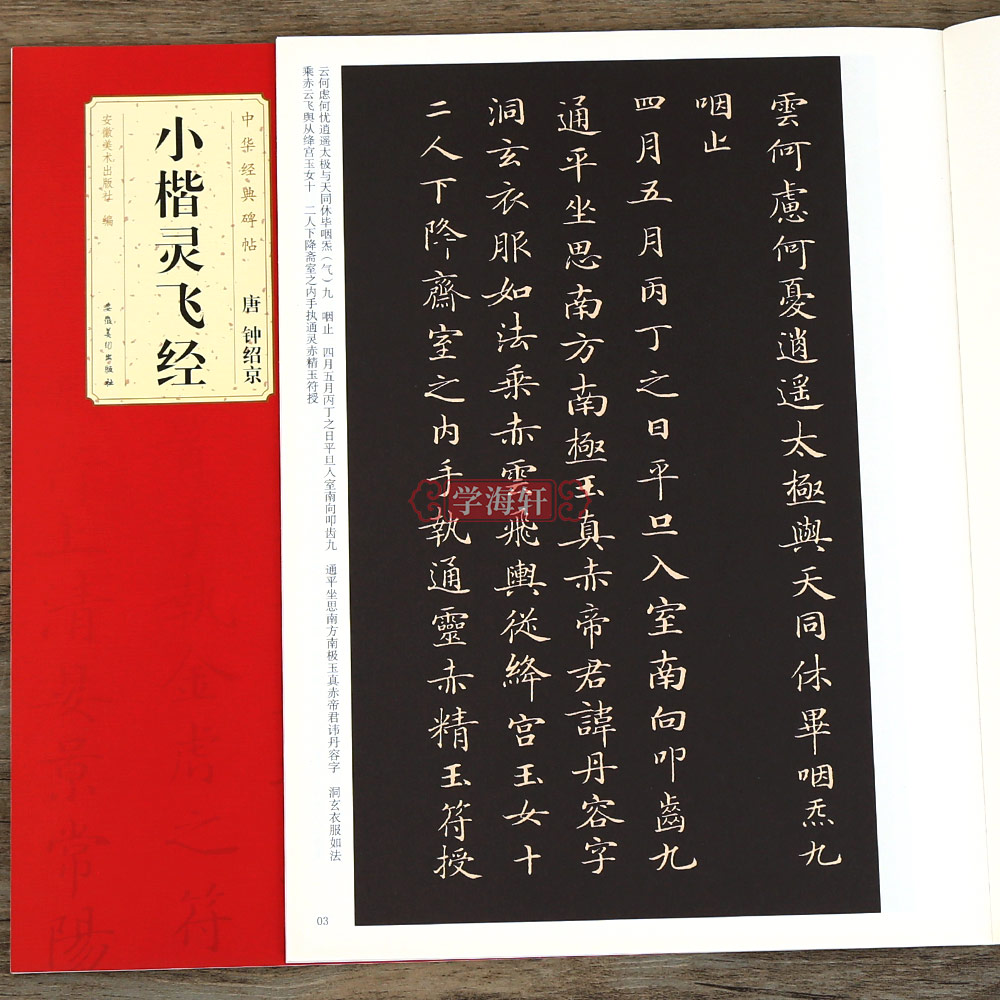 中华经典碑帖
唐 钟绍京
小楷灵飞经
安徽美术出版社 编
安徽美术出版社
雲何慮何憂逍遥太極與天同休畢咽炁九
咽止
四月五月丙丁之日平旦入室南向叩齒九
通平坐思南方南極玉真赤帝君諱丹容字
洞玄衣服如法乘赤雲飛輿従絳宮玉女十
二人下降齋室之内手執通靈赤精玉符授
云何虑何忧逍遥太极与天同休毕咽炁（气）九 咽止 四月五月丙丁之日平旦入室南向叩齿九 通平坐思南方南极玉真赤帝君讳丹容字 洞玄衣服如法
乘赤云飞舆从绛宫玉女十 二人下降斋室之内手执通灵赤精玉符授
03
学海轩
執金虎之符